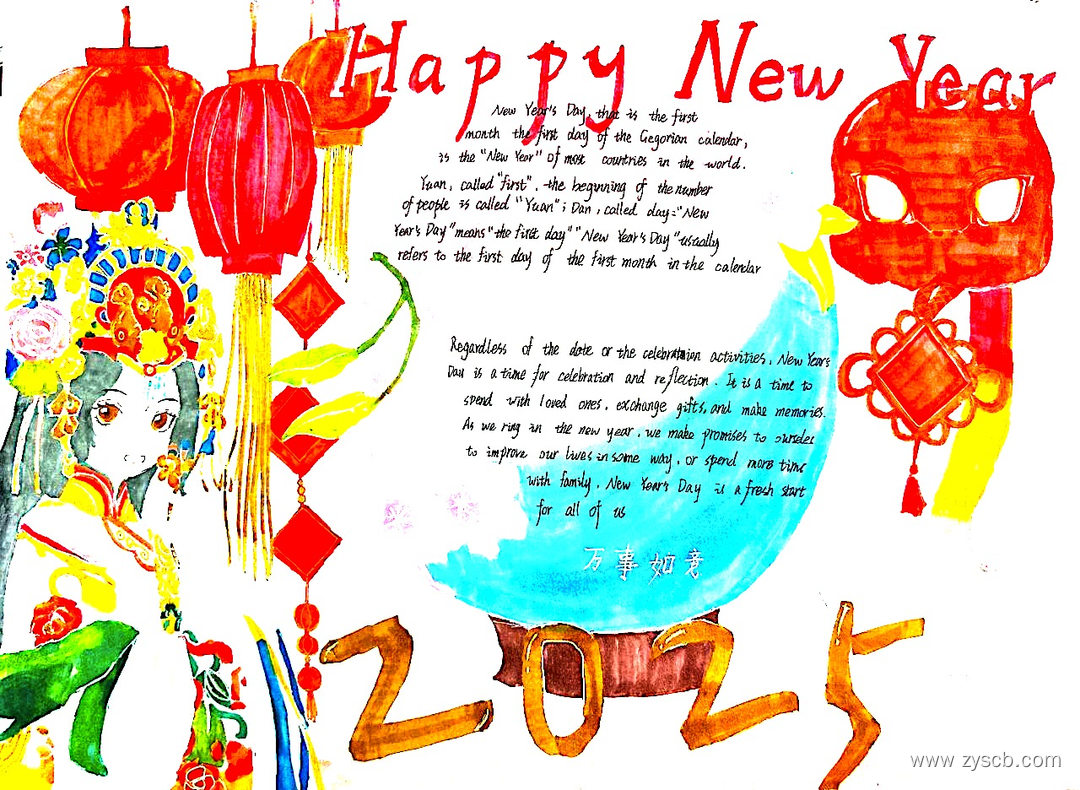 Happy New Year
New Year's Day, that is the first
month the first day of the Gegorian calendar,
is the "New Year" of most countries in the world.
Yuan, called "first", the beginning of the number
of people is called "Yuan"; Dan, called day: "New
Year's Day" means "the first day" "New Year's Day" usually
refers to the first day of the first month in the calendar
Regardless of the date or the activities, New Years
Day is a time for celebration and reflection. It is a time to
spend with loved ones, exchange gifts, and make memories.
As we ring in the new year, we make promises to
to improve our lives in some way, or spend more time
with family. New Year's Day is a fresh start
for all of us
万事如意
2025
www.zyscb.com